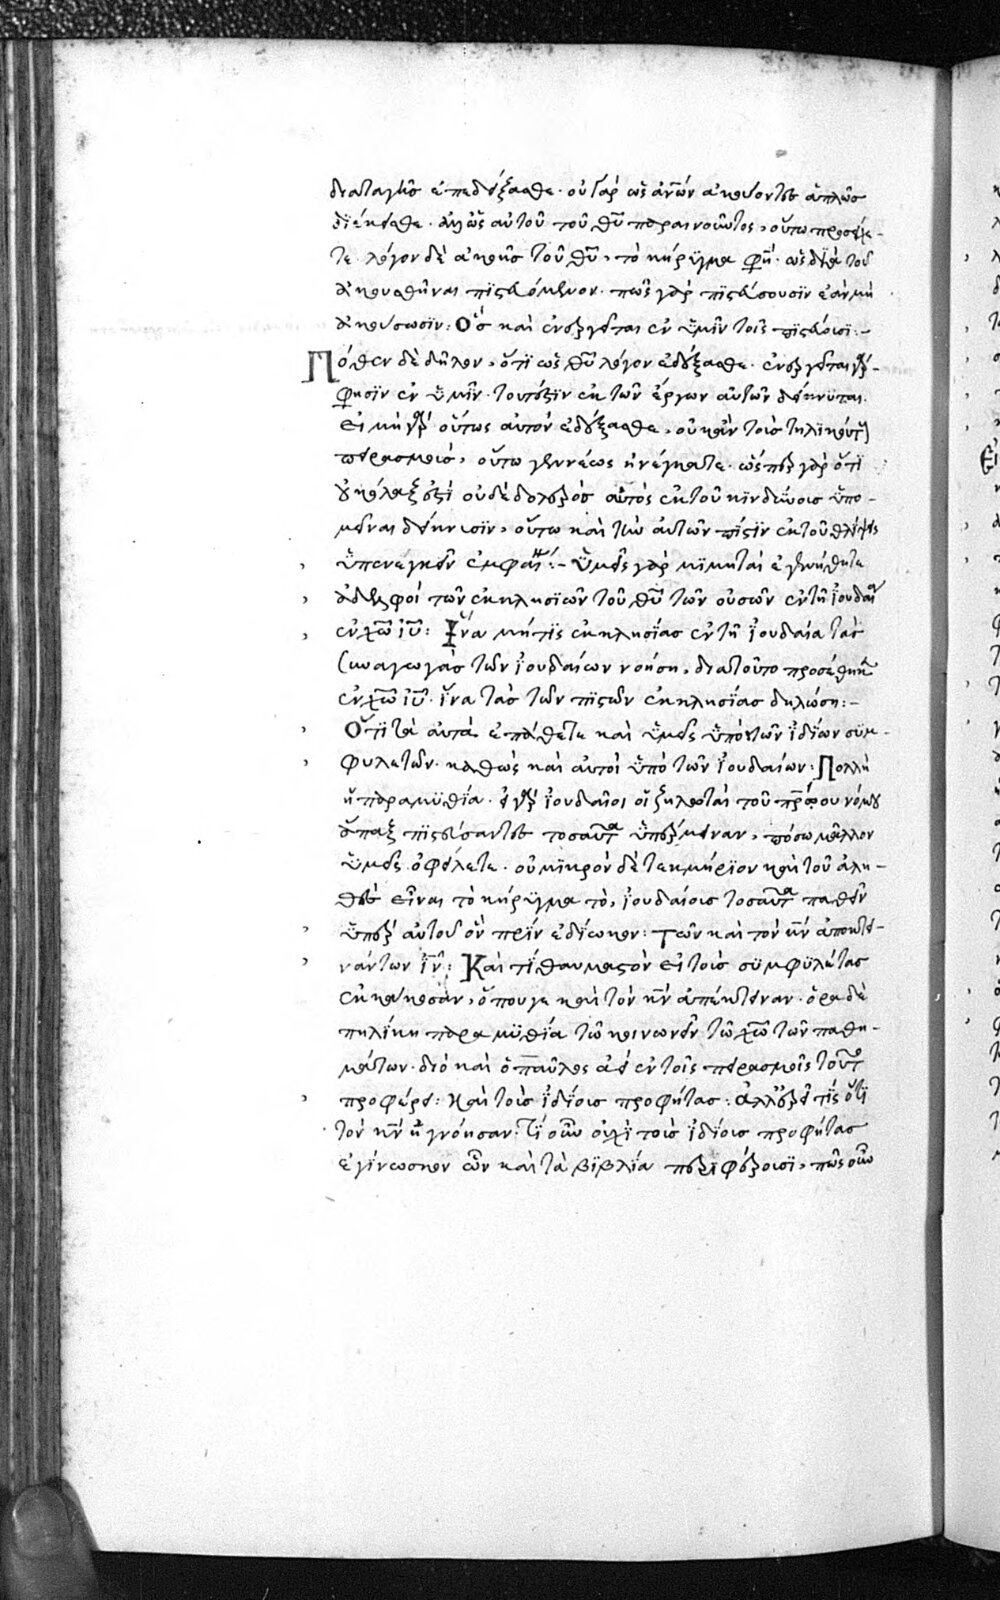 διαταγῆς ἐπεδείξασθε· οὐ γὰρ ὡς ἀνῶν ἀκούοντες ἁπλῶς
διέκεισθε· ἀλλ' ὡς αὐτοῦ τοῦ θῦ παραινοῦντος, οὕτω προσείχε-
τε· λόγον δὲ ἀκοῆς τοῦ θῦ, τὸ κήρυγμα φησὶ· ὡς διὰ τοῦ
ἀκουσθῆναι πιστευόμενον· πῶς γὰρ πιστεύσουσιν ἐὰν μὴ
ἀκούσωσιν: Ὃς καὶ ἐνεργεῖται ἐν ὑμῖν τοῖς πιστεύουσι:-
Πόθεν δὲ δῆλον, ὅτι ὡς θῦ λόγον ἐδέξασθε· ἐνεργεῖται γάρ
φησιν ἐν ὑμῖν· τουτέστιν ἐκ τῶν ἔργων αὐτῶν δείκνυται.
εἰ μὴ γὰρ οὕτως αὐτὸν ἐδέξασθε, οὐκ ἂν τοῖς τηλικούτοις
πειρασμοῖς, οὕτω γενναίως ἠνέγκατε· ὥσπερ γὰρ ὅτι
οὐ κόλαξ ἐστὶ οὐδὲ δολερὸς αὐτὸς ἐκ τοῦ κινδύνοις ὑπο-
μεῖναι δείκνυσιν, οὕτω καὶ τὴν αὐτῶν πίστιν ἐκ τοῦ θλίψεις
ὑπενεγκεῖν ἐμφαίνει:- Ὑμεῖς γὰρ μιμηταὶ ἐγενήθητε
ἀδελφοί τῶν ἐκκλησιῶν τοῦ θῦ τῶν οὐσῶν ἐν τῇ ἰουδαίᾳ
ἐν χῶ ἰῦ: Ἵνα μή τις ἐκκλησίας ἐν τῇ ἰουδαία τὰς
συναγωγὰς τῶν ἰουδαίων νοήσῃ, διατοῦτο προσέθηκεν
ἐν χῶ ἰῦ· ἵνα τὰς τῶν πιστῶν ἐκκλησίας δηλώσῃ:-
Ὅτι τὰ αὐτὰ ἐπάθετε καὶ ὑμεῖς ὑπὸ τῶν ἰδίων συμ-
φυλετῶν· καθὼς καὶ αὐτοὶ ὑπὸ τῶν ἰουδαίων: Πολλὴ
ἡ παραμυθία· εἰ γὰρ ἰουδαῖοι οἱ ζηλωταὶ τοῦ πατρῴου νόμου
ἅπαξ πιστεύσαντες τοσαῦτα ὑπέμειναν, πόσω μᾶλλον
ὑμεῖς ὀφείλετε· οὐ μικρὸν δὲ τεκμήριον καὶ τοῦ ἀλη-
θὲς εἶναι τὸ κήρυγμα τὸ, ἰουδαίοις τοσαῦτα παθεῖν
ὑπὲρ αὐτοῦ ὃν πρὶν ἐδίωκον: Τῶν καὶ τὸν κν̄ ἀποκτει-
νάντων ἰν̄: Καὶ τί θαυμαστὸν εἰ τοὺς συμφυλέτας
ἐκάκωσαν, ὅπου γε καὶ τὸν κν̄ ἀπέκτειναν· ὅρα δὲ
πηλίκη παραμυθία τῶ κοινωνεῖν τῶ χῶ τῶν παθη-
μάτων· διὸ καὶ ὁ παῦλος ἀεὶ ἐν τοῖς πειρασμοῖς τοῦτο
προφέρει: Καὶ τοὺς ἰδίους προφήτας: Ἀλλ' ἐρεῖ τίς ὅτι
τὸν κν̄ ἠγνόησαν: Τί οὖν οὐχὶ τοὺς ἰδίους προφήτας
ἐγίνωσκον ὧν καὶ τὰ βιβλία περιφέρουσι, πῶς οὖν